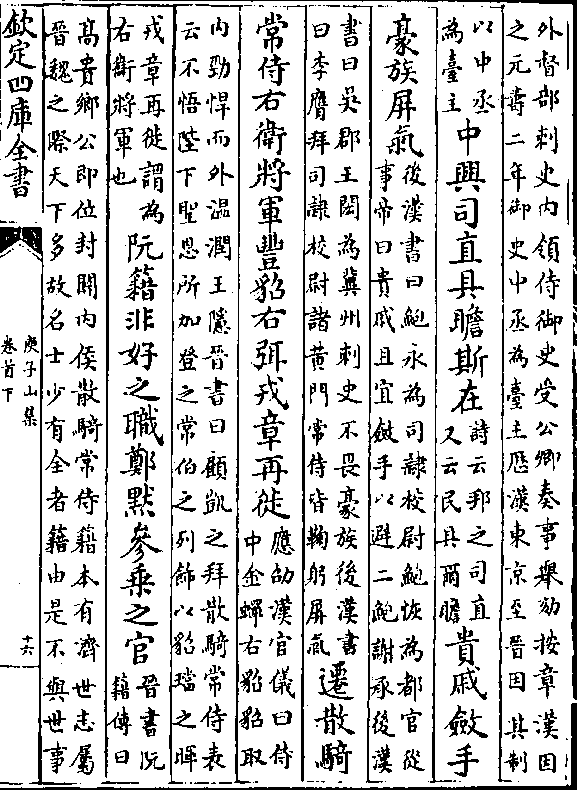 外督部刺史内領侍御史受公卿奏事舉劾按章漢因
之元壽二年御史中丞為臺主歴漢東京至晉因其制
以中丞
為臺主
中興司直具瞻斯在
詩云邦之司直
又云民具爾瞻
貴戚斂手
豪族屏氣
後漢書曰鮑永為司隷校尉鮑恢為都官從
事帝曰貴戚且宜斂手以避二鮑謝承後漢
書曰吳郡王閎為冀州刺史不畏豪族後漢書
曰李膺拜司隷校尉諸黄門常侍皆鞠躬屏氣
遷散騎
常侍右衛將軍豐貂右弭戎章再徙
應劭漢官儀曰侍
中金蟬右貂貂取
内勁悍而外温潤王隱晉書曰顧凱之拜散騎常侍表
云不悟陛下聖恩所加登之常伯之列飾以貂璫之暉
戎章再徙謂為
右衛將軍也
阮籍非好之職鄭默參乘之官
晉書阮
籍傳曰
髙貴鄉公即位封關内侯散騎常侍籍本有濟世志屬
晉魏之際天下多故名士少有全者籍由是不與世事
欽定四庫全書
庾子山集
卷首下
十六